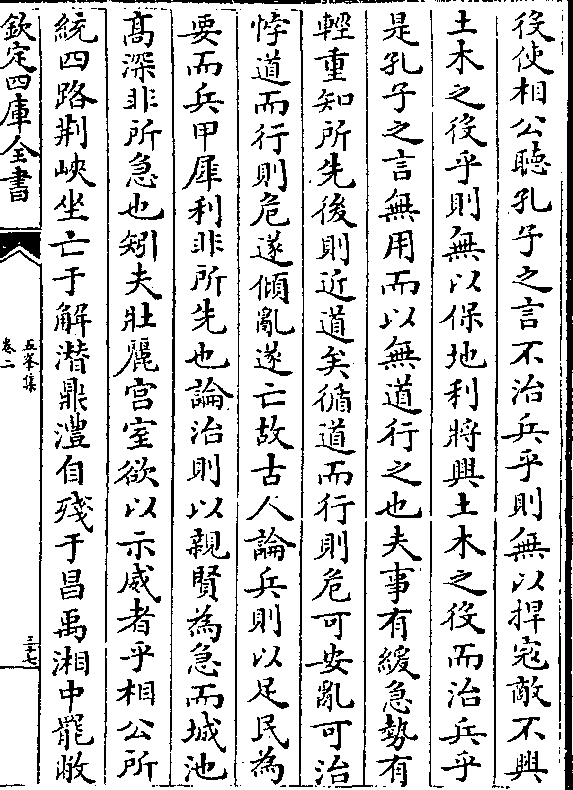 役使相公聽孔子之言不治兵乎則無以捍寇敵不興
土木之役乎則無以保地利將興土木之役而治兵乎
是孔子之言無用而以無道行之也夫事有緩急勢有
輕重知所先後則近道矣循道而行則危可安亂可治
悖道而行則危遂傾亂遂亡故古人論兵則以足民為
要而兵甲犀利非所先也論治則以親賢為急而城池
髙深非所急也矧夫壯麗宫室欲以示威者乎相公所
統四路荆峽坐亡于解潛鼎澧自殘于昌禹湘中罷敝
欽定四庫全書
五峯集
卷二
三十七